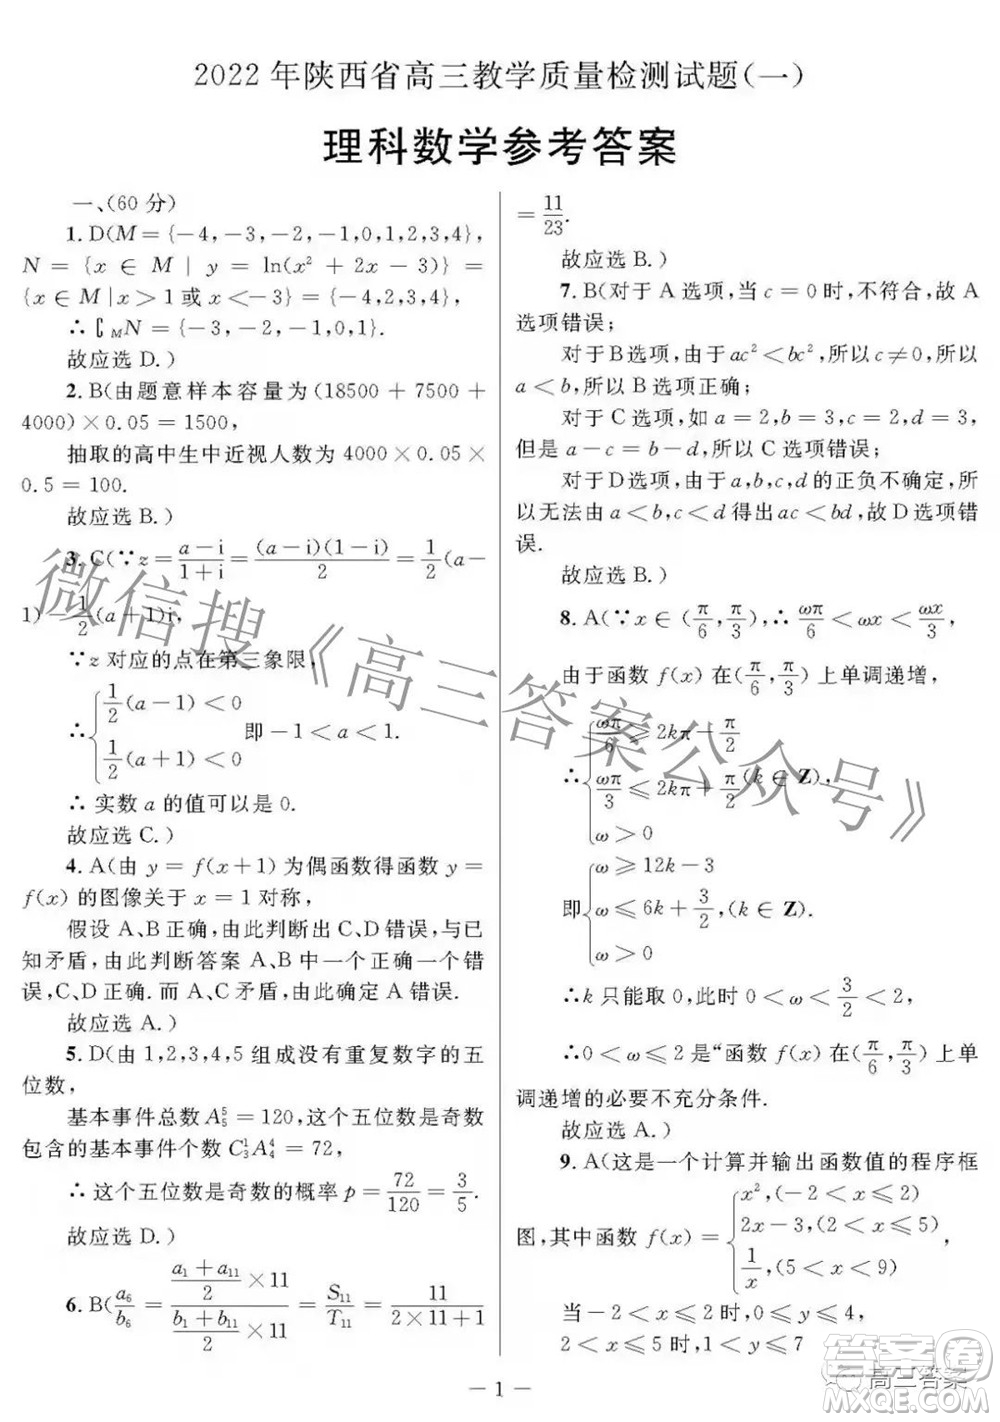 2022年陕西省高三教学质量检测试题(一)
理科数学参考答案
一、(60分)
1.D(M={-4,-3,-2,-1,0,1,2,3,4},
N={x∈M | y=ln(x²+2x-3)}=
{x∈M|x>1或x<-3}={-4,2,3,4},
∴∁_M N={-3,-2,-1,0,1}.
故应选D.)
2.B(由题意样本容量为(18500+7500+
4000)×0.05=1500,
抽取的高中生中近视人数为4000×0.05×
0.5=100.
故应选B.)
3.C(∵z=(a-i)/(1+i)=(a-i)(1-i)/2=1/2(a-
1)-1/2(a+1)i,
∵z对应的点在第三象限,
∴{1/2(a-1)<0
1/2(a+1)<0 即-1<a<1.
∴实数a的值可以是0.
故应选C.)
4.A(由y=f(x+1)为偶函数得函数y=
f(x)的图像关于x=1对称,
假设A、B正确,由此判断出C、D错误,与已
知矛盾,由此判断答案A、B中一个正确一个错
误,C、D正确.而A、C矛盾,由此确定A错误.
故应选A.)
5.D(由1,2,3,4,5组成没有重复数字的五
位数,
基本事件总数A₅⁵=120,这个五位数是奇数
包含的基本事件个数C₃¹A₄⁴=72,
∴这个五位数是奇数的概率p=72/120=3/5.
故应选D.)
6.B(a₆/b₆=((a₁+a₁₁)/2×11)/((b₁+b₁₁)/2×11)=S₁₁/T₁₁=11/(2×11+1)
=11/23.
故应选B.)
7.B(对于A选项,当c=0时,不符合,故A
选项错误;
对于B选项,由于ac²<bc²,所以c≠0,所以
a<b,所以B选项正确;
对于C选项,如a=2,b=3,c=2,d=3,
但是a-c=b-d,所以C选项错误;
对于D选项,由于a,b,c,d的正负不确定,所
以无法由a<b,c<d得出ac<bd,故D选项错
误.
故应选B.)
8.A(∵x∈(π/6,π/3),∴ωπ/6<ωx<ωx/3,
由于函数f(x)在(π/6,π/3)上单调递增,
∴{ωπ/6≥2kπ-π/2
ωπ/3≤2kπ+π/2(k∈Z),
ω>0
即{ω≥12k-3
ω≤6k+3/2,(k∈Z).
ω>0
∴k只能取0,此时0<ω<3/2,
∴0<ω≤2是“函数f(x)在(π/6,π/3)上单
调递增的必要不充分条件.
故应选A.)
9.A(这是一个计算并输出函数值的程序框
图,其中函数f(x)={x²,(-2<x≤2)
2x-3,(2<x≤5),
1/x,(5<x<9)
当-2<x≤2时,0≤y≤4,
2<x≤5时,1<y≤7
— 1 —
微信搜《高三答案公众号》
答案圈
高三答案